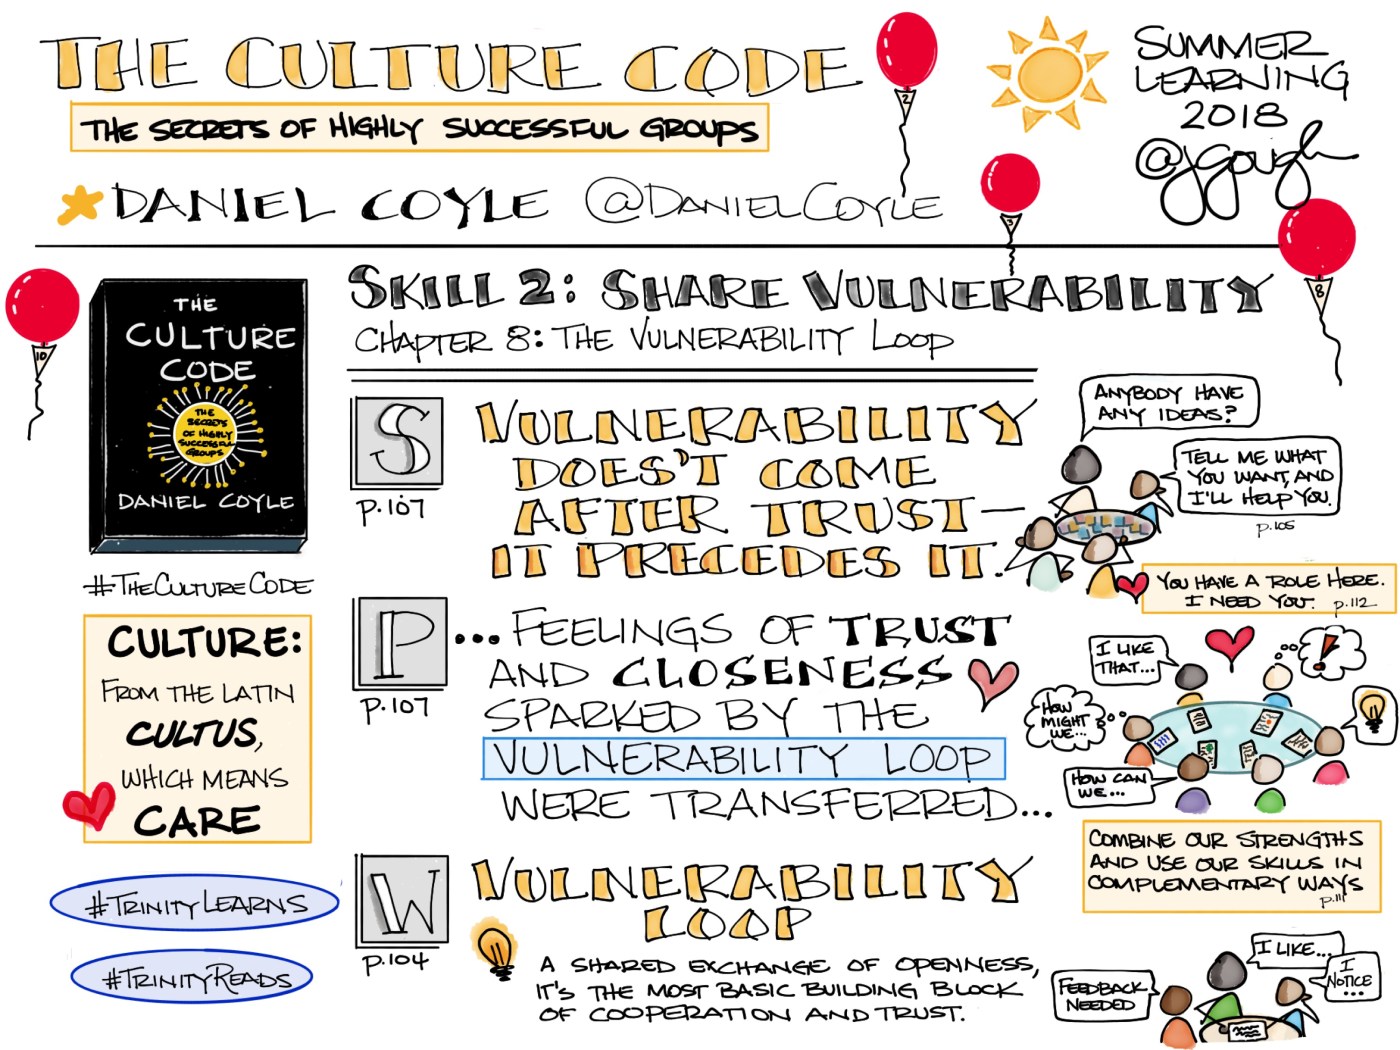 THE CULTURE CODE
THE SECRETS OF HIGHLY SUCCESSFUL GROUPS
DANIEL COYLE @DANIELCOYLE
2
3
8
10
SUMMER
LEARNING
2018
@jgough
THE
CULTURE
CODE
THE
SECRETS
OF HIGHLY
SUCCESSFUL
GROUPS
DANIEL COYLE
#THECULTURECODE
CULTURE:
FROM THE LATIN
CULTUS,
WHICH MEANS
CARE
#TRINITYLEARNS
#TRINITYREADS
SKILL 2: SHARE VULNERABILITY
CHAPTER 8: THE VULNERABILITY LOOP
S
p.107
VULNERABILITY
DOES'T COME
AFTER TRUST—
IT PRECEDES IT.
P
p.107
...FEELINGS OF TRUST
AND CLOSENESS
SPARKED BY THE
VULNERABILITY LOOP
WERE TRANSFERRED...
W
p.104
VULNERABILITY
LOOP
A SHARED EXCHANGE OF OPENNESS,
IT'S THE MOST BASIC BUILDING BLOCK
OF COOPERATION AND TRUST.
ANYBODY HAVE
ANY IDEAS?
TELL ME WHAT
YOU WANT, AND
I'LL HELP YOU.
p.105
YOU HAVE A ROLE HERE.
I NEED YOU. p.112
I LIKE
THAT...
!
HOW
MIGHT
WE...
HOW CAN
WE...
COMBINE OUR STRENGTHS
AND USE OUR SKILLS IN
COMPLEMENTARY WAYS
p.111
I LIKE...
I
NOTICE
...
FEEDBACK
NEEDED